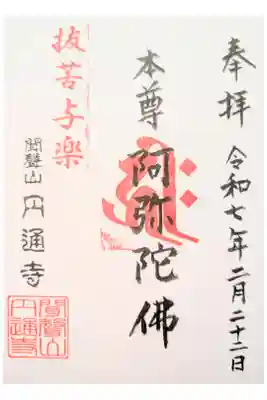 奉拝 令和七年二月二十二日
本尊 阿弥陀佛
抜苦与楽
聞聲山 円通寺
聞聲山
円通寺